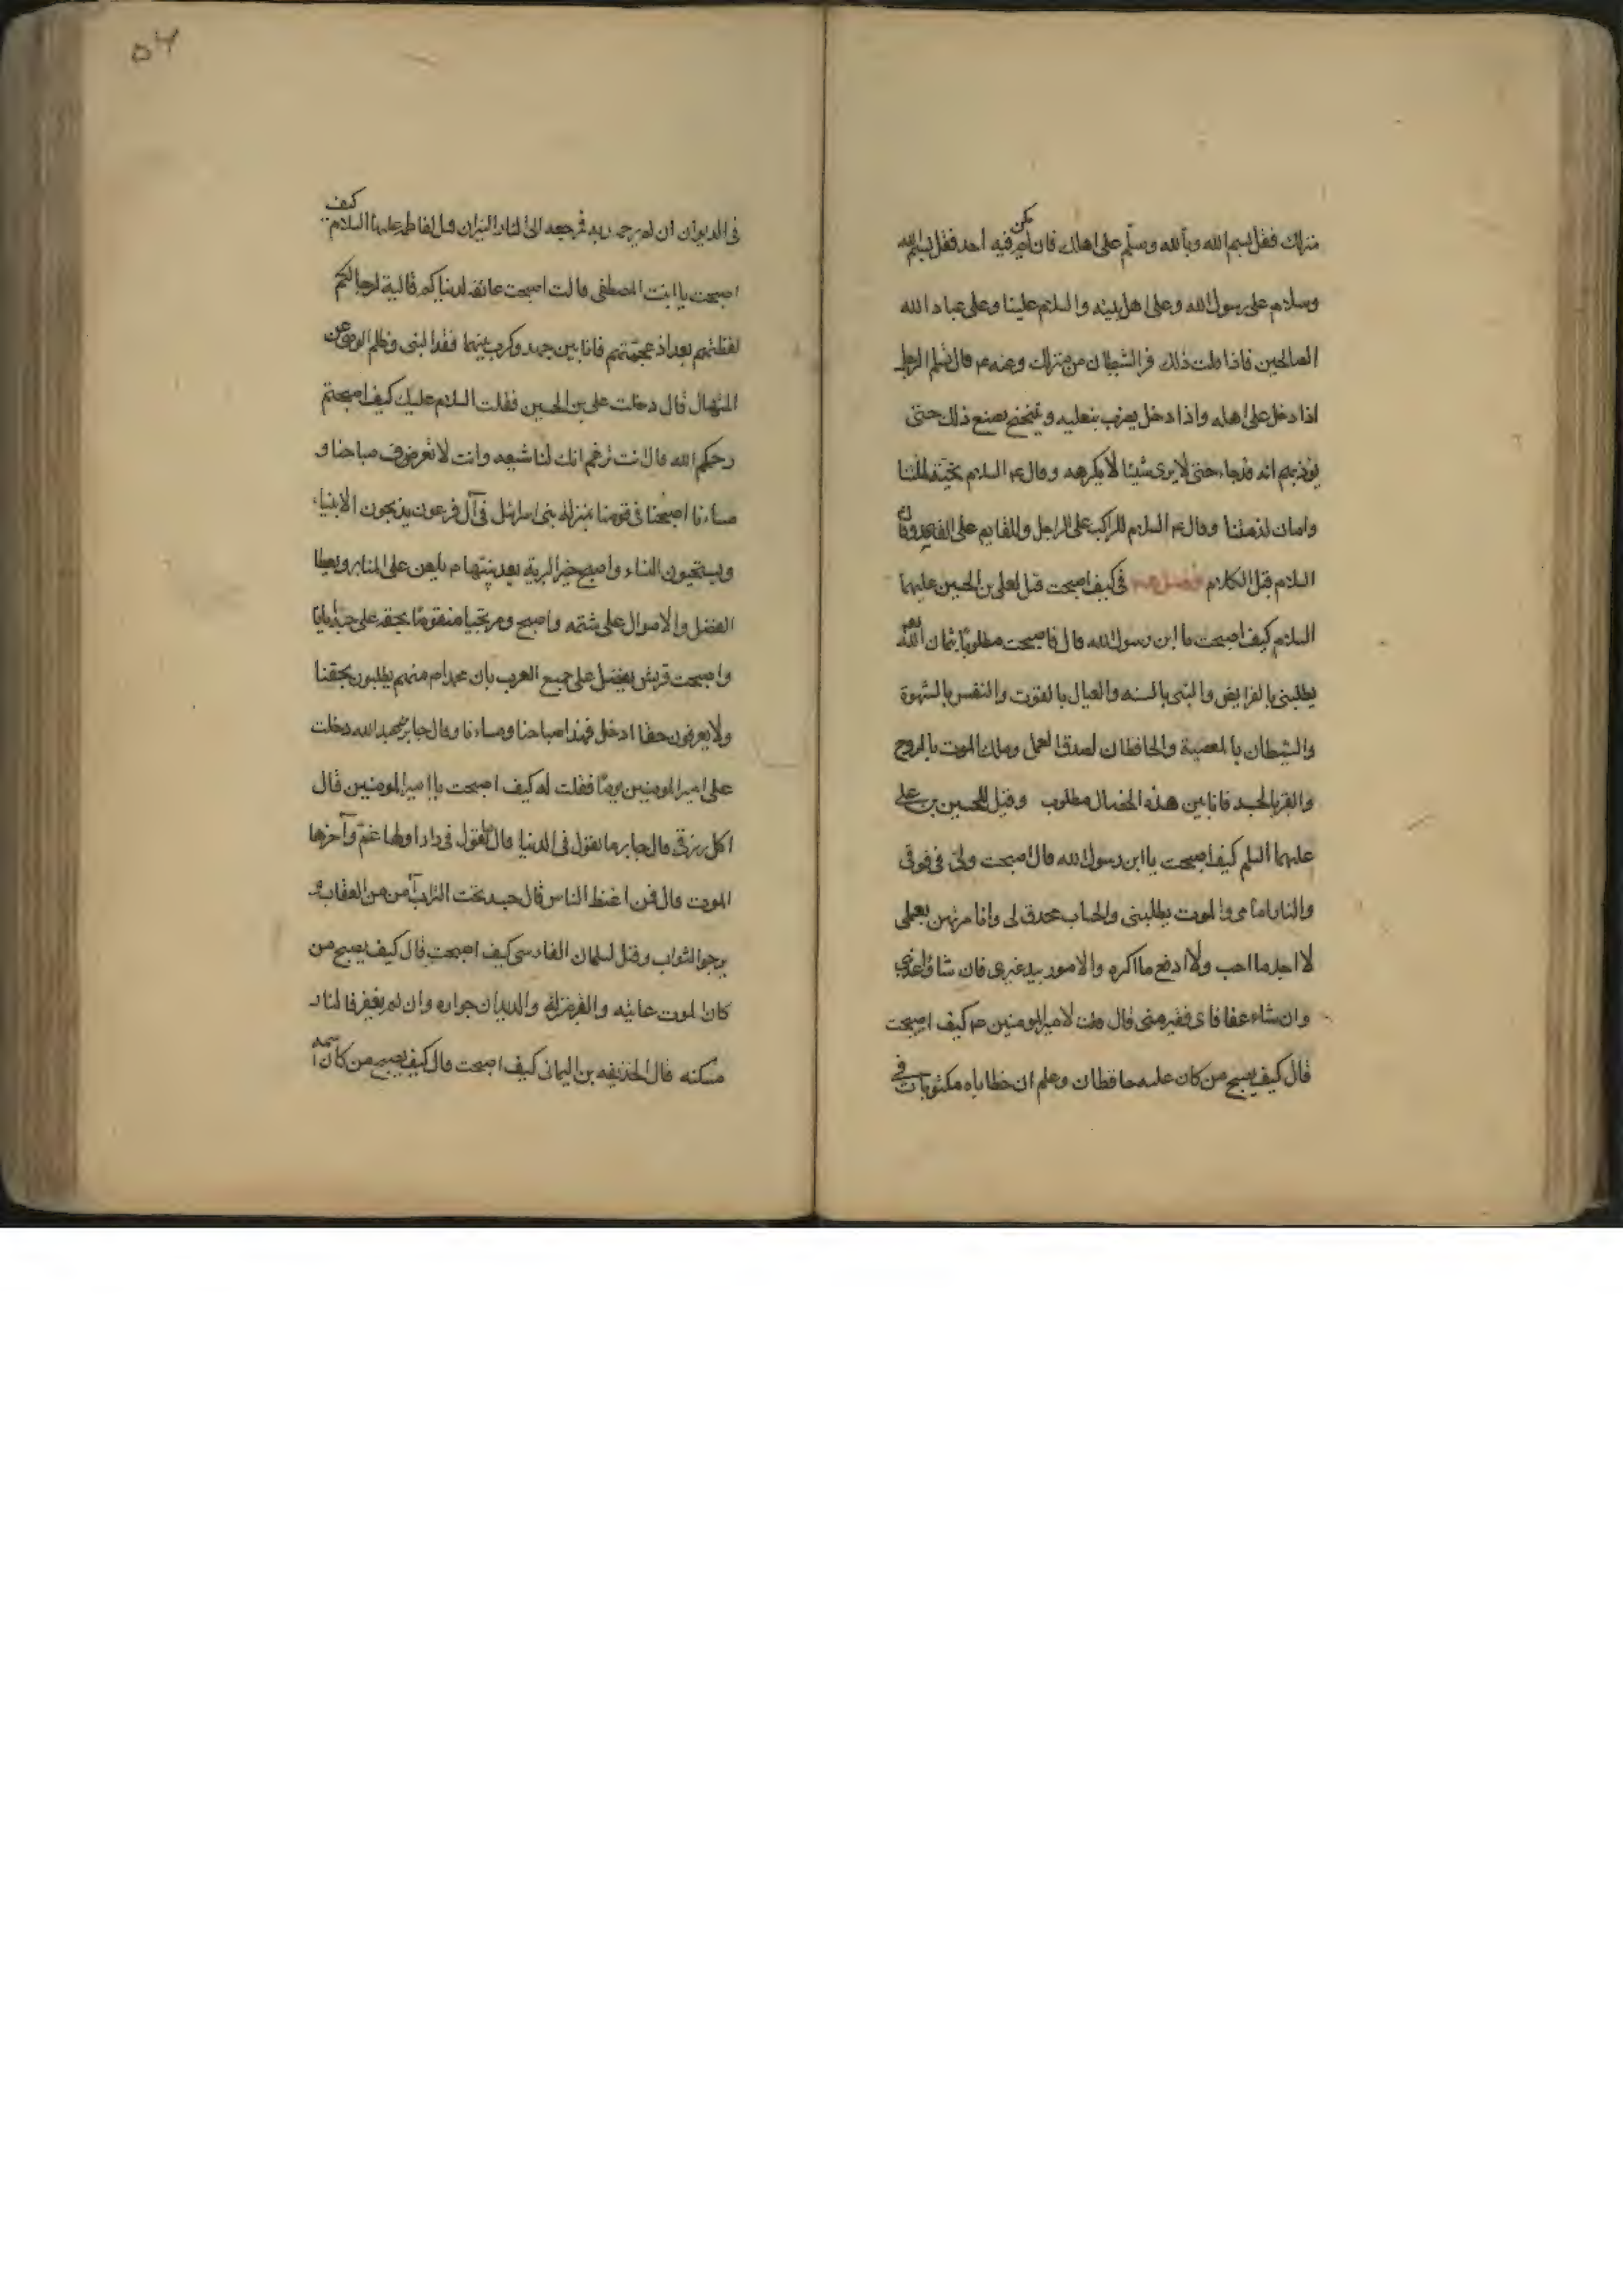 منزلك فقل بسم الله وبالله وسلّم على اهلك فان لم يكن فيه احد فقل بسم الله
وسلام على رسول الله وعلى اهل بيته والسلام علينا وعلى عباد الله
الصالحين فاذا قلت ذلك فر الشيطان من منزلك وعنه ع قال يسلم الرجل
اذا دخل على اهله واذا دخل يضرب بنعليه ويتنحنح يصنع ذلك حتى
يؤذنهم انه قد جاء حتى لا يرى شيئا لا يكرهه وقال ع السلام تحية لملتنا
وامان لذمتنا وقال ع السلام للراكب على الراجل وللقايم على القاعد وقال
السلام قبل الكلام فصل في كيف اصبحت قيل لعلي بن الحسين عليهما
السلام كيف اصبحت يا ابن رسول الله قال اصبحت مطلوبا بثمان الله
يطلبني بالفرايض والنبي بالسنه والعيال بالقوت والنفس بالشهوة
والشيطان بالمعصية والحافظان لصدق العمل وملك الموت بالروح
والقبر بالجسد فانا بين هذه الخصال مطلوب وقيل للحسين بن على
عليهما السلم كيف اصبحت يا ابن رسول الله قال اصبحت ولي في فوقى
والنار امامى والموت يطلبنى والحساب محدق لى وانا مرتهن بعملى
لا اجد ما احب ولا ادفع ما اكره والامور بيد غيرى فان شاء عذبني
وان شاء عفا فاى فقير منى قال قلت لامير المومنين ع كيف اصبحت
قال كيف يصبح من كان عليه حافظان وعلم ان خطاياه مكتوبات في
٥٦
فى الديوان ان لم يرحمه ربه فرجعه الى النار النيران قيل لفاطمة عليها السلام كيف
اصبحت يا ابنت المصطفى قالت اصبحت عائفة لدنياكم قالية لرجالكم
لفظتهم بعد اذ عجمتهم فانا بين جهد وكرب بينهما فقد النبى وظلم الوصى عن
المنهال قال دخلت على بن الحسين فقلت السلام عليك كيف اصبحتم
رحمكم الله قال انت تزعم انك لنا شيعه وانت لا تعرف صباحنا و
مساءنا اصبحنا فى قومنا بمنزلة بنى اسرائل فى آل فرعون يذبحون الابناء
ويستحيون النساء واصبح خير البرية بعد نبيها م يلعن على المنابر ويعطا
الفضل والاموال على شتمه واصبح من يحبنا منقوصا بحقه على حبه ايانا
واصبحت قريش يفضل على جميع العرب بان محمدا م منهم يطلبون بحقنا
ولا يعرفون حقنا ادخل فهذا صباحنا ومساءنا وقال جابر بن عبد الله دخلت
على امير المومنين يوما فقلت له كيف اصبحت يا امير المومنين قال
اكل رزقى قال جابر ما تقول فى الدنيا قال ما تقول فى دار اولها غم وآخرها
الموت قال فمن اغبط الناس قال جسد تحت التراب آمن من العقاب و
يرجوا الثواب وقيل لسلمان الفارسى كيف اصبحت قال كيف يصبح من
كان الموت غايته والقبر منزله والديدان جواره وان لم يغفر فالنار
مسكنه قال لحذيفه بن اليمانى كيف اصبحت قال كيف يصبح من كان اسمه